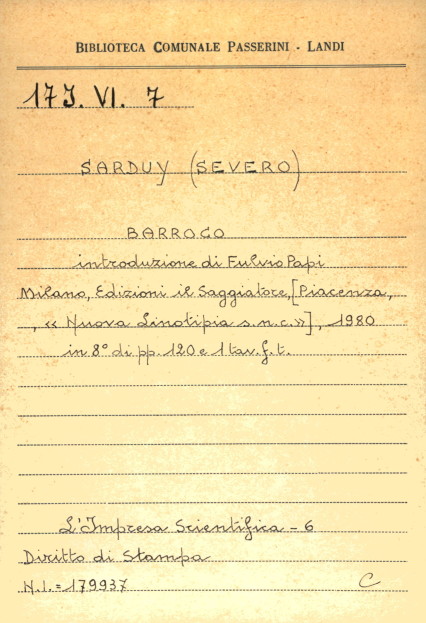 BIBLIOTECA COMUNALE PASSERINI - LANDI
17J. VI. 7
SARDUY (SEVERO)
BARROCO
introduzione di Fulvio Papi
Milano, Edizioni il Saggiatore, [Piacenza,
, « Nuova Linotipia s.n.c.»], 1980
in 8° di pp. 120 e 1 tav. f. t.
L'Impresa Scientifica - 6
Diritto di Stampa
N.I. = 179937 C